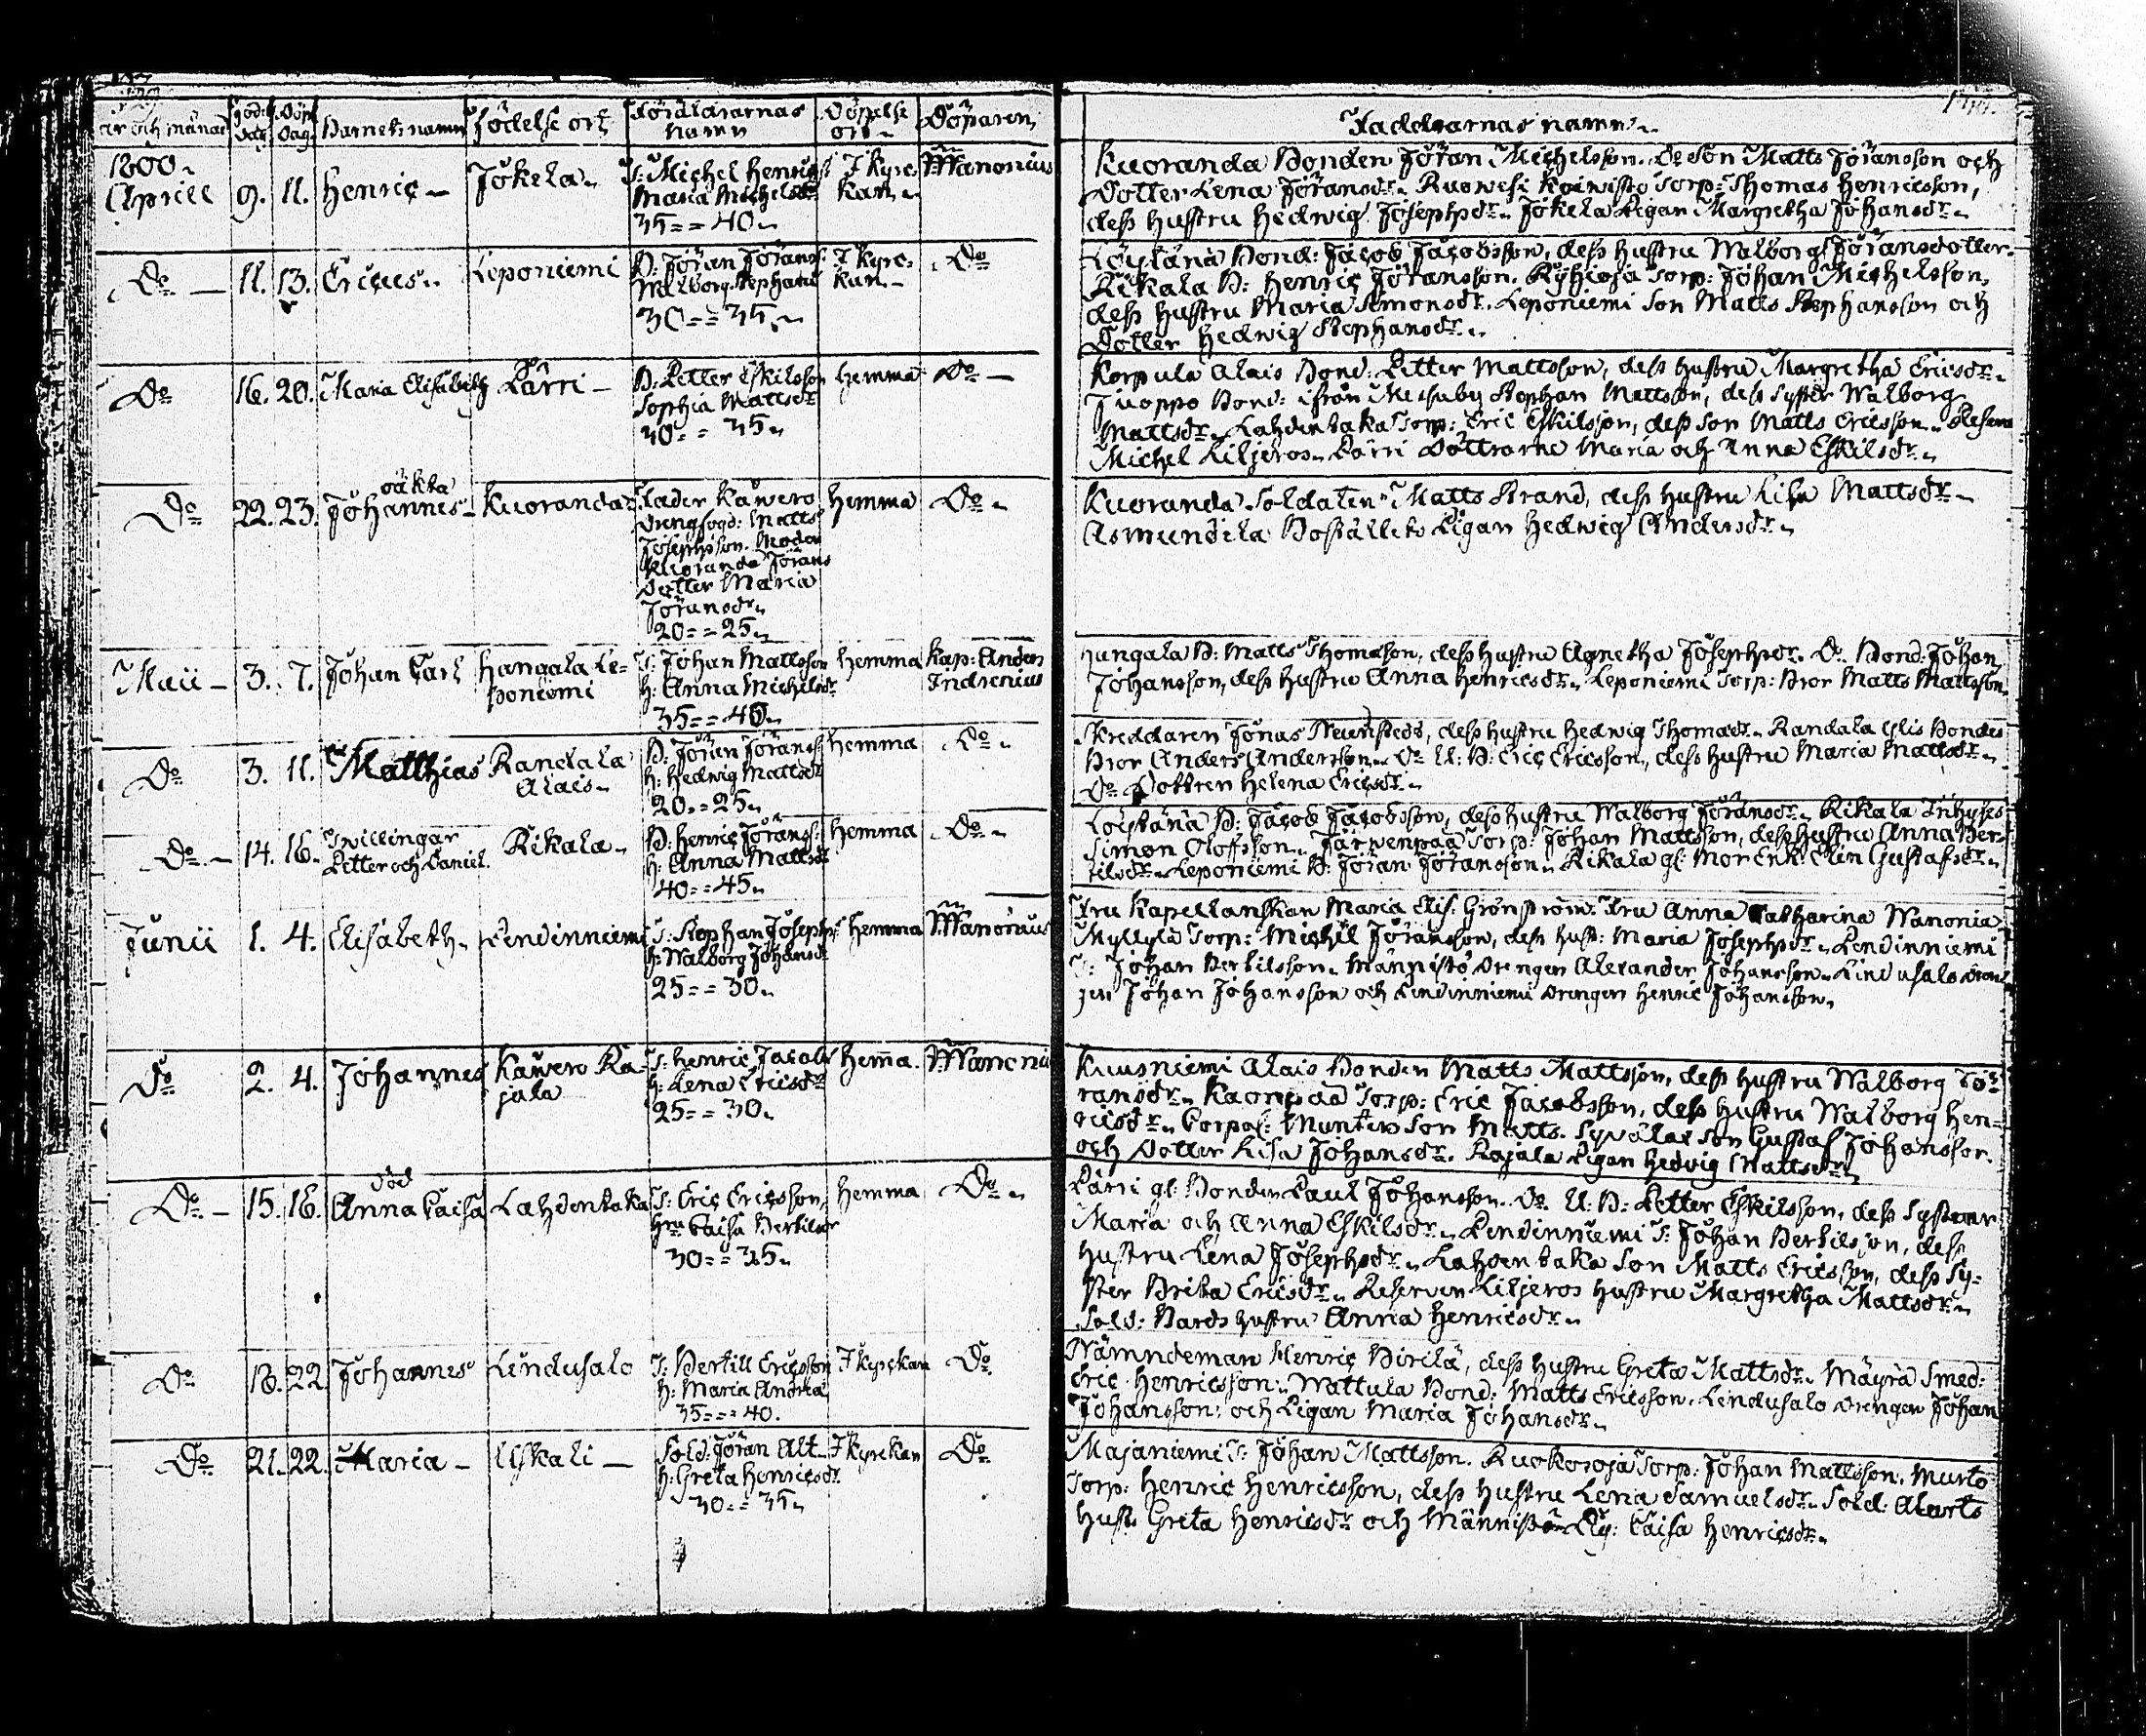 år och månad Föd: Dag Döp: Dag Barnets namn Födelse ort Föräldrarnas namn Döpelse ort Döparen
Faddrarnas namn
1800.
Aprill 9. 11. Henric Jokela T: Michel Henricss: Maria Michelsdr I Kyrckan M: Wanonius
35 == 40
Kuoranda Bonden Jöran Michelsson. Do Son Matts Jöransson och
Dotter Lena Jöransdr. Ruowesi Koiwisto Torp: Thomas Henricsson,
dess hustru Hedwig Josephsdr. Jokela Pigan Margretha Johansdr.
Do 11. 13. Ericus Leponiemi B: Jöran Jöranss: Walborg Stephansd I Kyrckan Do
30 == 35
Löytänä Bond: Jacob Jacobsson, dess hustru Walborg Jöransdotter.
Rikala B: Henric Jöransson. Torp: Johan Michelsson,
dess hustru Maria Simonsdr. Leponiemi Son Matts Stephansson och
Dotter Hedwig Stephansdr.
Do 16. 20. Maria Elisabeth Pärri B: Petter Eskilsson Sophia Mattsdr hemma Do
30 == 35
Korpula Alais Bond: Petter Mattsson, dess hustru Margretha Ericsdr.
Juoppo Bond: ifrån Stephan Mattsson, dess Syster Walborg
Mattsdr. Lahdentaka Torp: Eric Eskilsson, dess Son Matts Ericsson.
Michel Liljeros. Pärri Döttrarne Maria och Anna Eskilsdr.
Do 22. 23. oäkta Johannes Kuoranda Fader Kawero hemma Do
Drengfogd: Matts
Josephsson. Moder
Kuoranda Jörans
Dotter Maria
Jöransdr
20 == 25
Kuoranda Soldaten Matts Strand, dess hustru Lisa Mattsdr
Asmundila Boställets Pigan Hedwig Andersdr
Maii 3. 7. Johan Carl Hangala Leponiemi T: Johan Mattsson H: Anna Michelsdr hemma Kap: Anders Indrenius
35 == 40
Hangala B: Matts Thomasson, dess hustru Agnetha Josephsdr. Do Bond: Johan
Johansson, dess hustru Anna Henricsdr. Leponiemi Torp: Bror Matts Mattsson.
Do 3. 11. Matthias Randala Alais B: Jöran Jöranss: H: Hedwig Mattsdr hemma Do
20 == 25
Jonas dess hustru Hedwig Thomasdr. Randala Ylis Bondes
Bror Anders Andersson. Do U: B: Eric Ericsson, dess hustru Maria Mattsdr.
Do Dottren Helena Ericsdr.
Do 14. 16. Twillingar Petter och Daniel Rikala B: Henric Jöranss: H: Anna Mattsdr hemma Do
40 == 45
Löytänä B: Jacob Jacobsson, dess hustru Walborg Jöransdr. Rikala Inhyses
Simon Olofsson. Järwenpää Torp: Johan Mattsson, dess hustru Anna Ber-
tilsdr. Leponiemi B: Jöran Jöransson. Rikala gl: Mor Enk: Elin Gustafsdr.
Junii 1. 4. Elisabeth Lendinniemi T: Stephan Josephss: H: Walborg Johansdr hemma M: Wanonius
25 == 30
Fru Kapellanskan Maria Elis: Grönström. Fru Anna Catharina Wanonia.
Myllylä Torp: Michel Jöransson, dess hust: Maria Josephsdr. Lendinniemi
T: Johan Bertilsson. Männistö Drengen Alexander Johansson. Lindusalo Dren-
gen Johan Johansson och Lendinniemi Drengen Henric Johansson.
Do 2. 4. Johannes Kawero Rajala T: Henric Jacobs: H: Lena Ericsdr hema. M: Wanonius
25 == 30
Kuusniemi Alais Bonden Matts Mattsson, dess hustru Walborg Jö-
ransdr. Torp: Eric Jacobsson, dess hustru Walborg Hen-
ricsdr. Corpor: Munters Son Matts. Son Gustaf Johansson
och Dotter Lisa Johansdr. Rajala Pigan Hedvig Mattsdr.
Do 15. 16. död Anna Caisa Lahdentaka T: Eric Ericsson, Hu: Caisa Bertilsdr hemma Do
30 == 35
Pärri gl: Bonden Paul Johansson. Do U: B: Petter Eskilsson, dess Systrar
Maria och Anna Eskilsdr. Lendinniemi T: Johan Bertilsson, dess
hustru Lena Josephsdr. Lahdentaka Son Matts Ericsson, dess Sy-
ster Brita Ericsdr. Reserven Liljeros hustru Margretha Mattsdr.
Sold: Bards hustru Anna Henricsdr.
Do 18. 22. Johannes Lindusalo T: Bertill Ericsson H: Maria Andrea I Kyrckan Do
35 == 40.
Nämndeman Henric Birilä, dess hustru Greta Mattsdr. Mäyrä Smed:
Eric Henricsson. Wattula Bond: Matts Ericsson. Lendusalo Drengen Johan
Johansson, och Pigan Maria Johansdr.
Do 21. 22. Maria Uskali Sold: Jöran Alt H: Greta Henricsdr I Kyrckan Do
30 == 35
Majaniemi T: Johan Mattsson. Ruokoroja Torp: Johan Mattsson. Murto
Torp: Henric Henricsson, dess hustru Lena Samuelsdr. Sold:
Hust: Greta Henricsdr och Männistö Caisa Henricsdr.